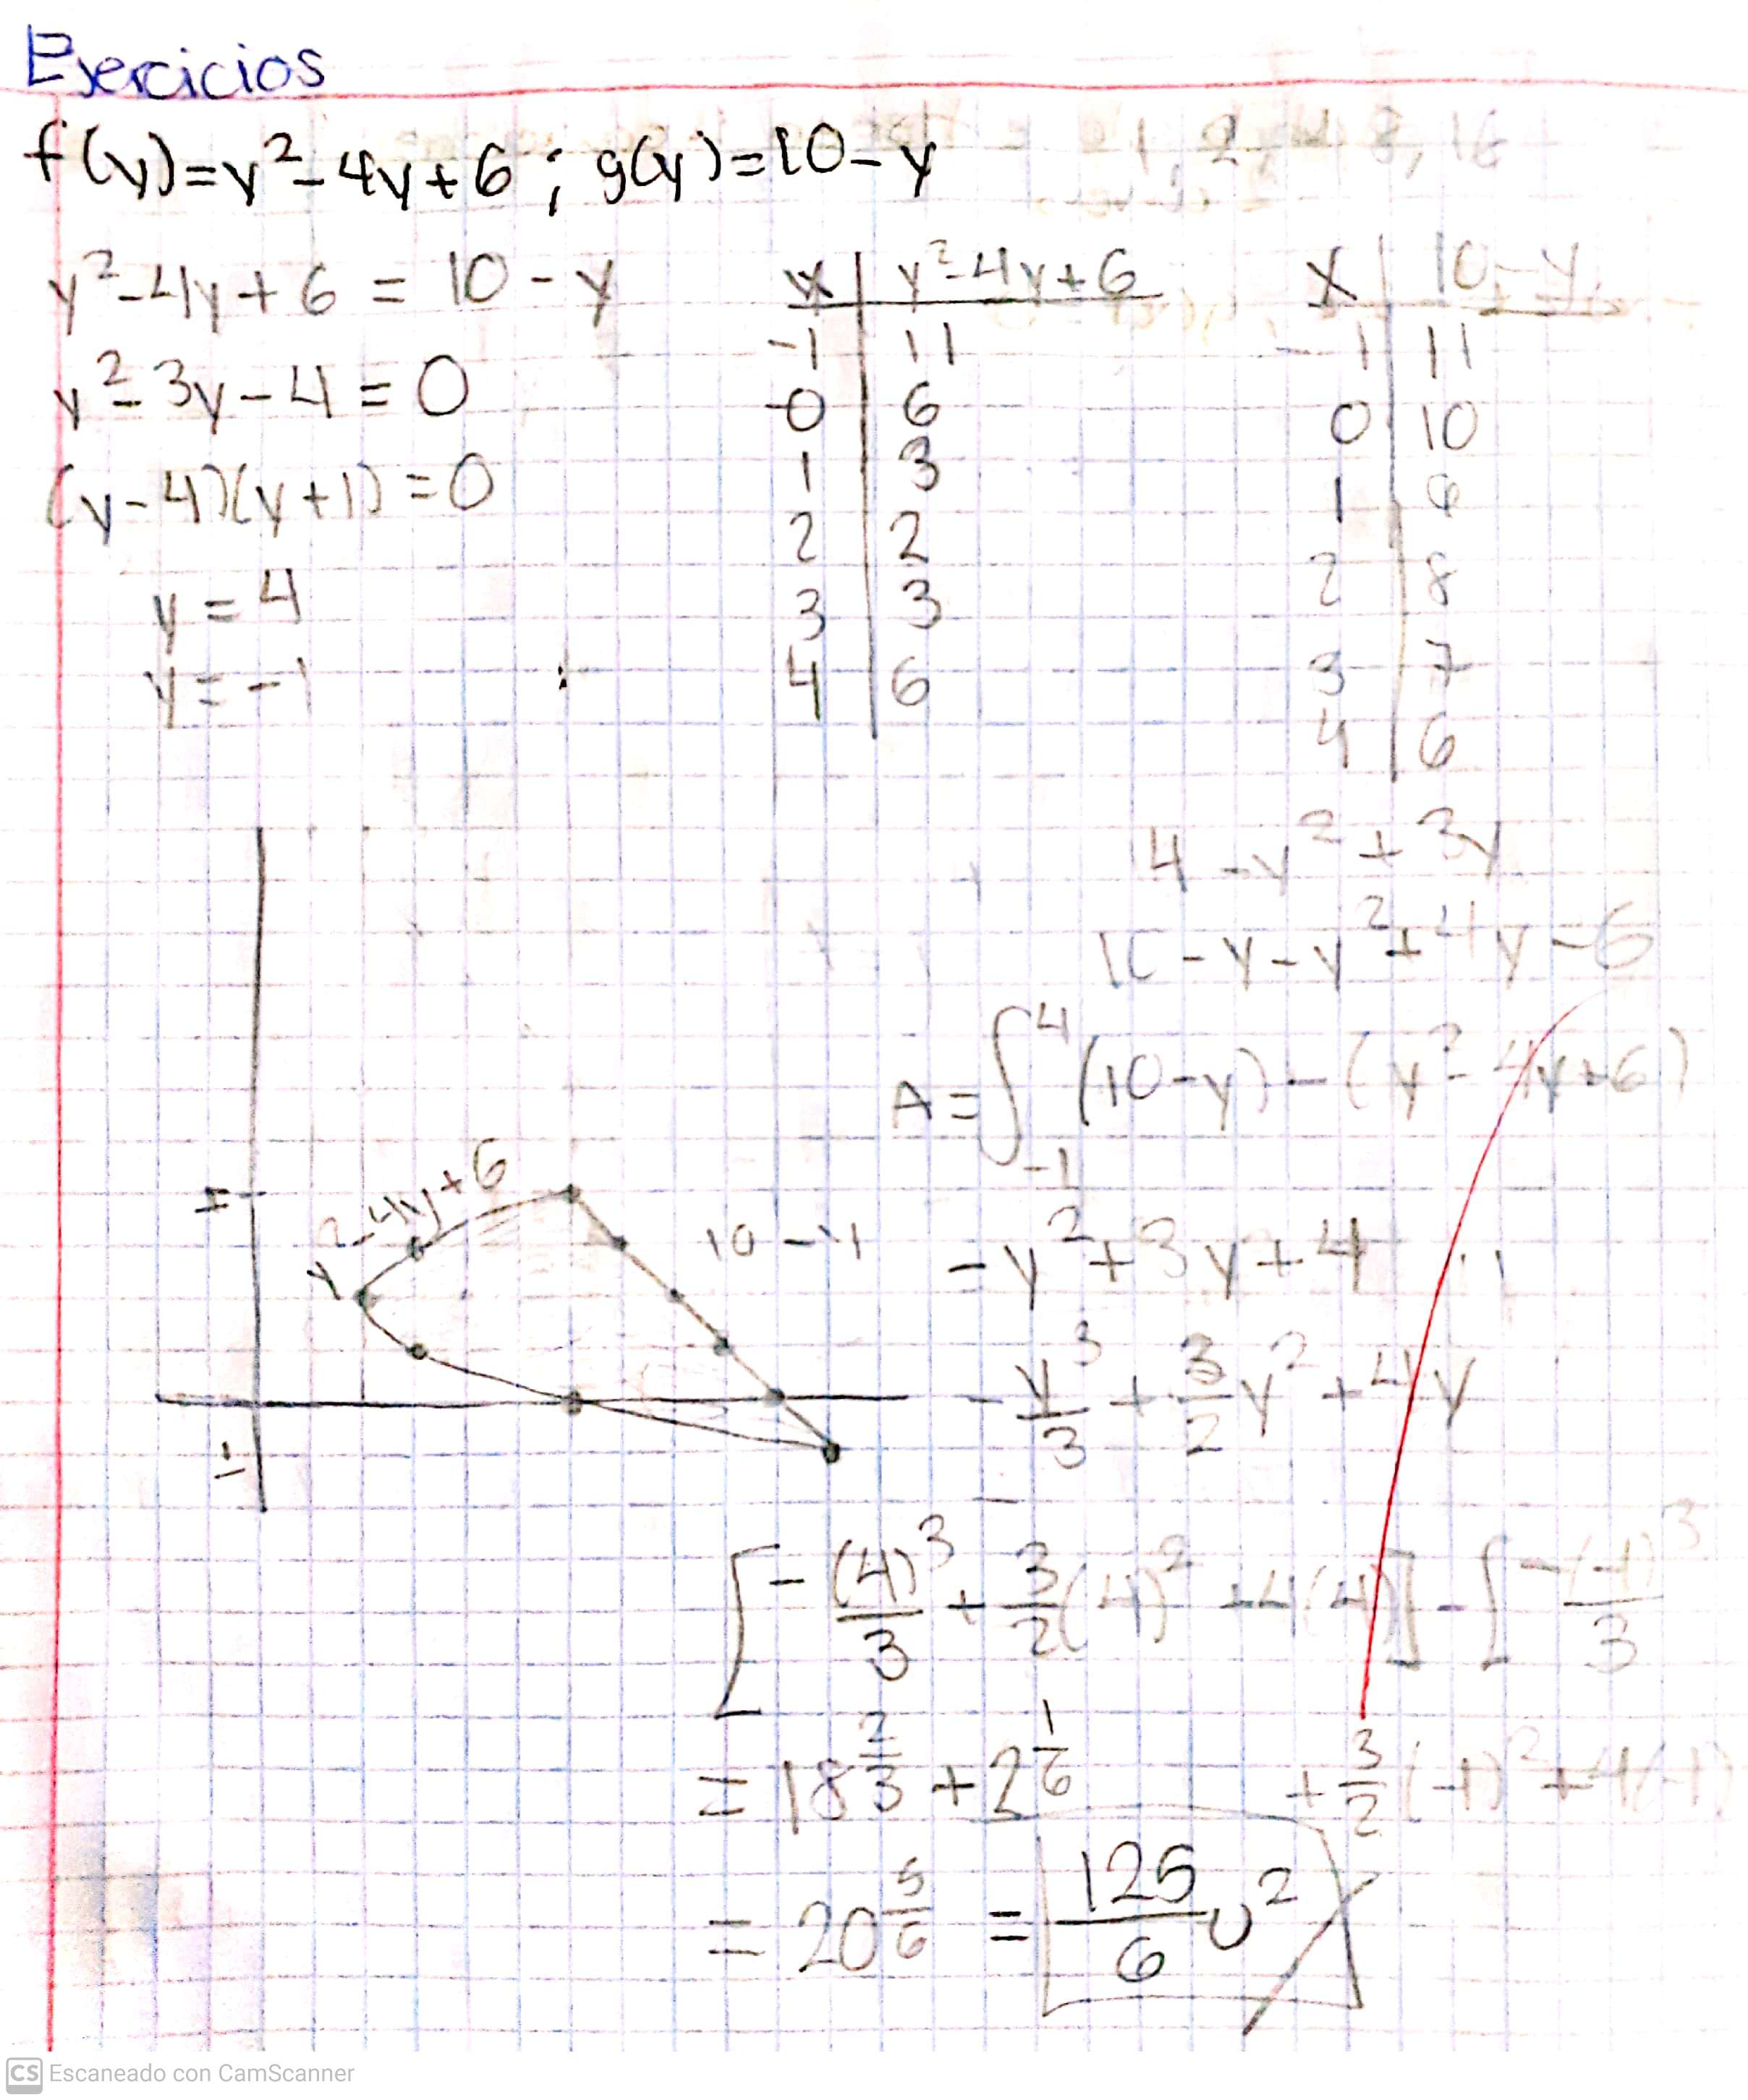 Ejercicios
f(y)=y²-4y+6 ; g(y)=10-y
y²-4y+6 = 10-y
y²-3y-4=0
(y-4)(y+1)=0
y=4
y=-1
x | y²-4y+6
-1 | 11
-0 | 6
1 | 3
2 | 2
3 | 3
4 | 6
X | 10-y
-1 | 11
0 | 10
1 | 9
2 | 8
3 | 7
4 | 6
4-y²+3y
10-y-y²+4y-6
A=∫₋₁⁴ (10-y)-(y²-4y+6)
4
y²-4y+6
10-y
-1
-y²+3y+4
-y³/3 + 3/2 y² + 4y
[-(4)³/3 + 3/2(4)² + 4(4)] - [-(-1)³/3
+ 3/2(-1)² + 4(-1)
= 18 2/3 + 2 1/6
= 20 5/6 = 125/6 u²
CS Escaneado con CamScanner